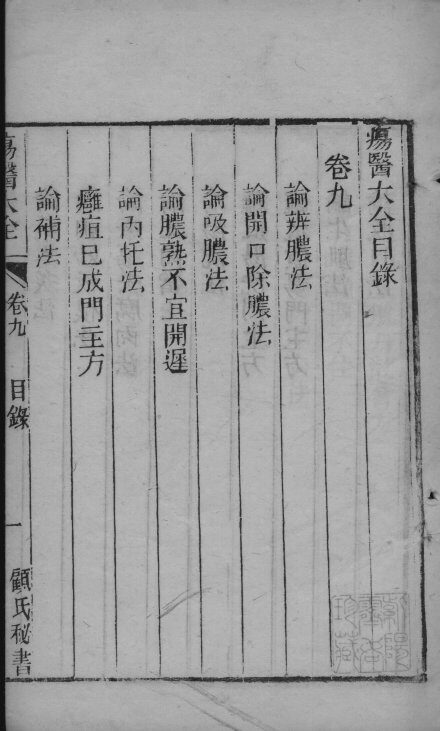 瘍醫大全目錄
卷九
論辨膿法
論開口除膿法
論吸膿法
論膿熟不宜開遲
論內托法
癰疽已成門主方
論補法
瘍醫大全
卷九
目錄
一
顧氏秘書